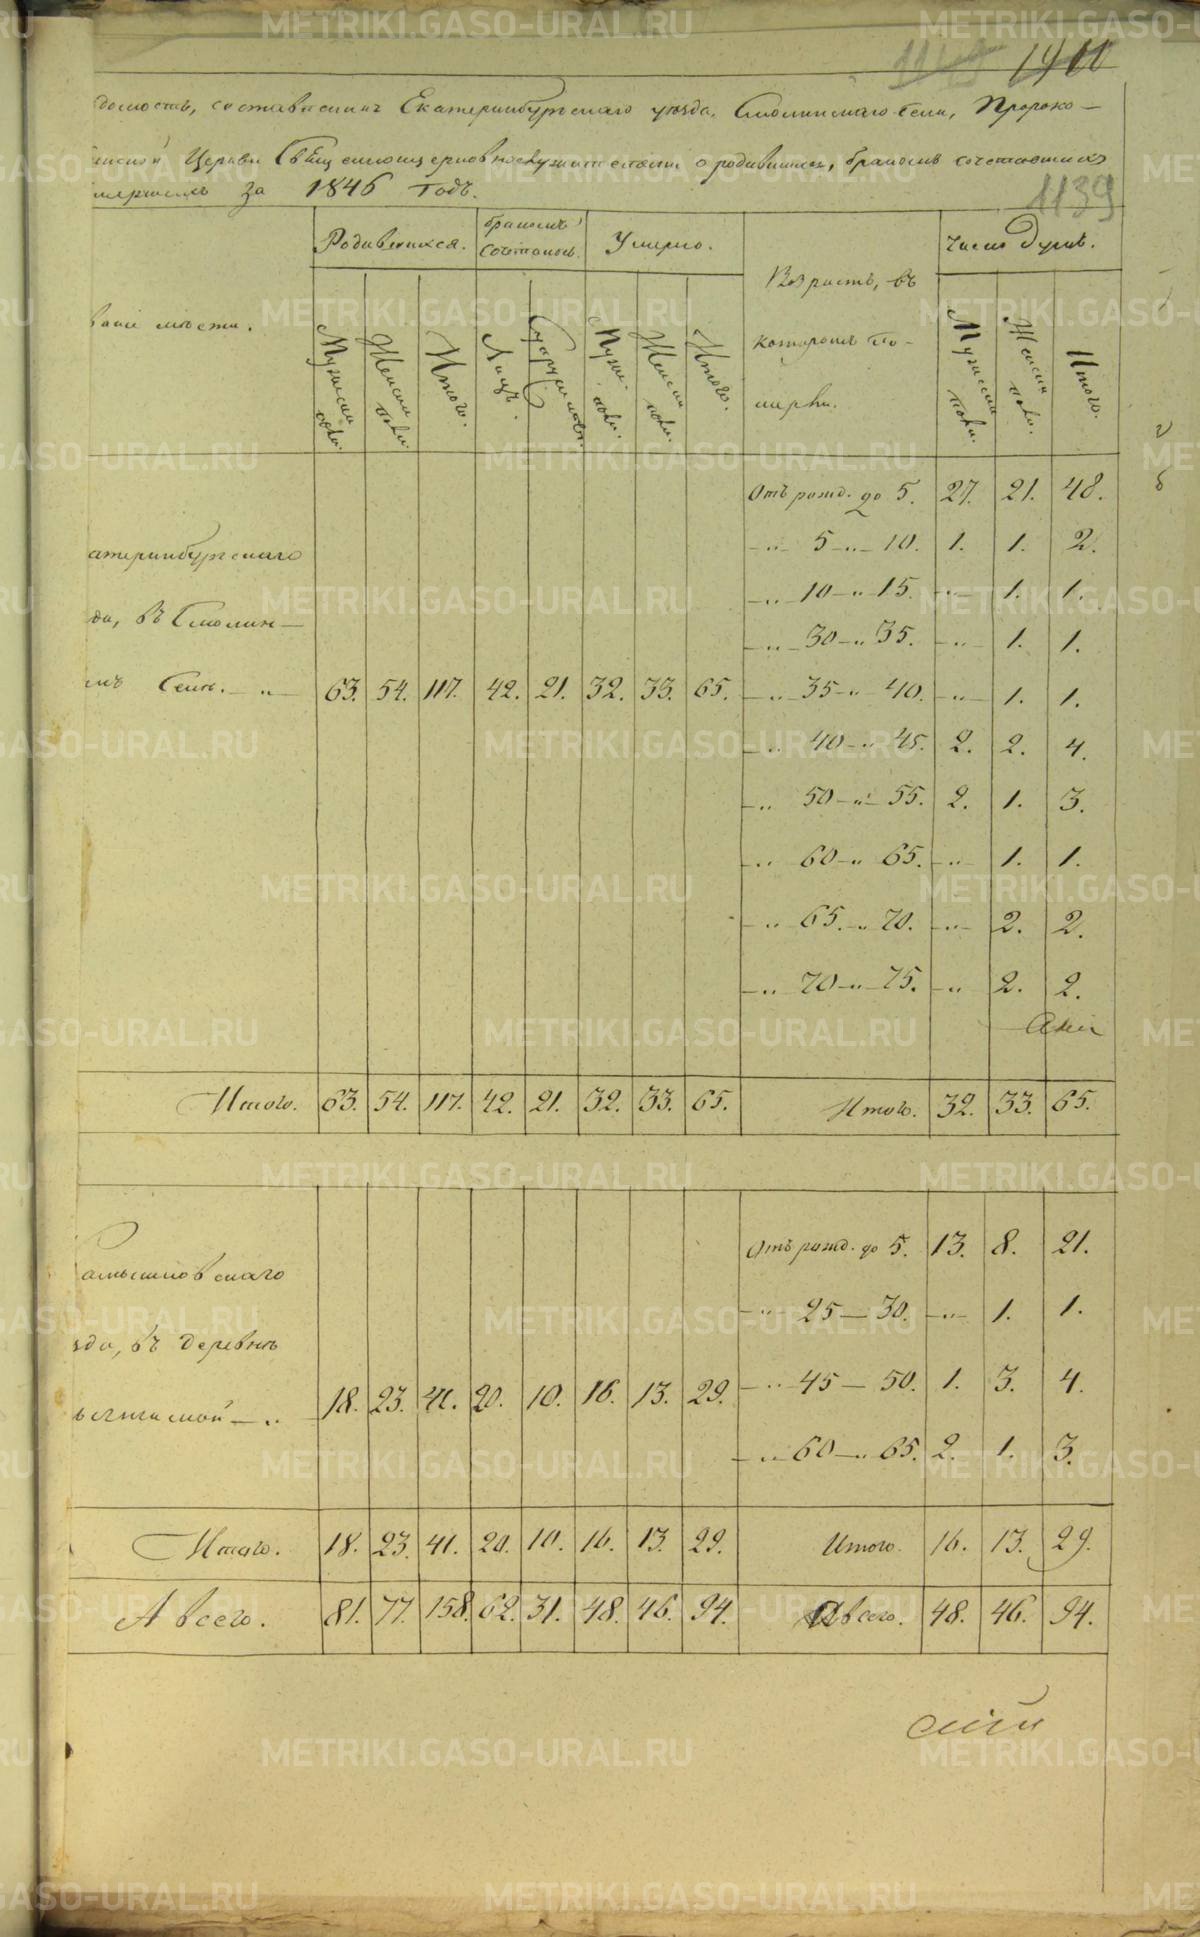 1140 1411
домость, составленная Екатеринбургскаго уѣзда, Смолинскаго села, Пророко-
Церкви Священноцерковнослужителями о родившихся, бракомъ сочетавшихся
умершихъ за 1846 годъ.
1139
Родившихся. бракомъ сочетаюсь. Умерло. Возрастъ, въ которомъ померли. Число душъ.
званіе мѣста. Мужеска пола. Женска пола. Итого. Лицъ. Супружествъ. Муж. пола. Женска пола. Итого. Мужеска пола. Женска пола. Итого.
Отъ рожд. до 5. 27. 21. 48.
атеринбургскаго -„- 5 -„- 10. 1. 1. 2.
-„ 10 -„ 15. -„- 1. 1.
да, въ Смолин- -„ 30 -„ 35. -„- 1. 1.
мъ Селѣ. -„- 63. 54. 117. 42. 21. 32. 33. 65. -„ 35 -„ 40. -„- 1. 1.
-„ 40 -„ 45. 2. 2. 4.
-„ 50 -„- 55. 2. 1. 3.
-„ 60 -„ 65. -„- 1. 1.
-„ 65. -„ 70. -„- 2. 2.
-„ 70 -„ 75. -„ 2. 2.
Итого. 63. 54. 117. 42. 21. 32. 33. 65. Итого. 32. 33. 65.
Отъ рожд. до 5. 13. 8. 21.
амышловскаго -„ 25 — 30. -„- 1. 1.
зда, въ деревнѣ
18. 23. 41. 20. 10. 16. 13. 29. -„ 45 — 50. 1. 3. 4.
-„ 60 -„ 65. 2. 1. 3.
Итого. 18. 23. 41. 20. 10. 16. 13. 29. Итого. 16. 13. 29.
А всего. 81. 77. 158. 62. 31. 48. 46. 94. А всего. 48. 46. 94.
METRIKI.GASO-URAL.RU